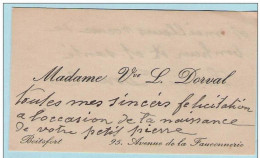 Madame Vve L. Dorval
toutes mes sincères felicitation
a loccasion de la naissance
de votre petit pierre
Boitsfort 95, Avenue de la Fauconnerie